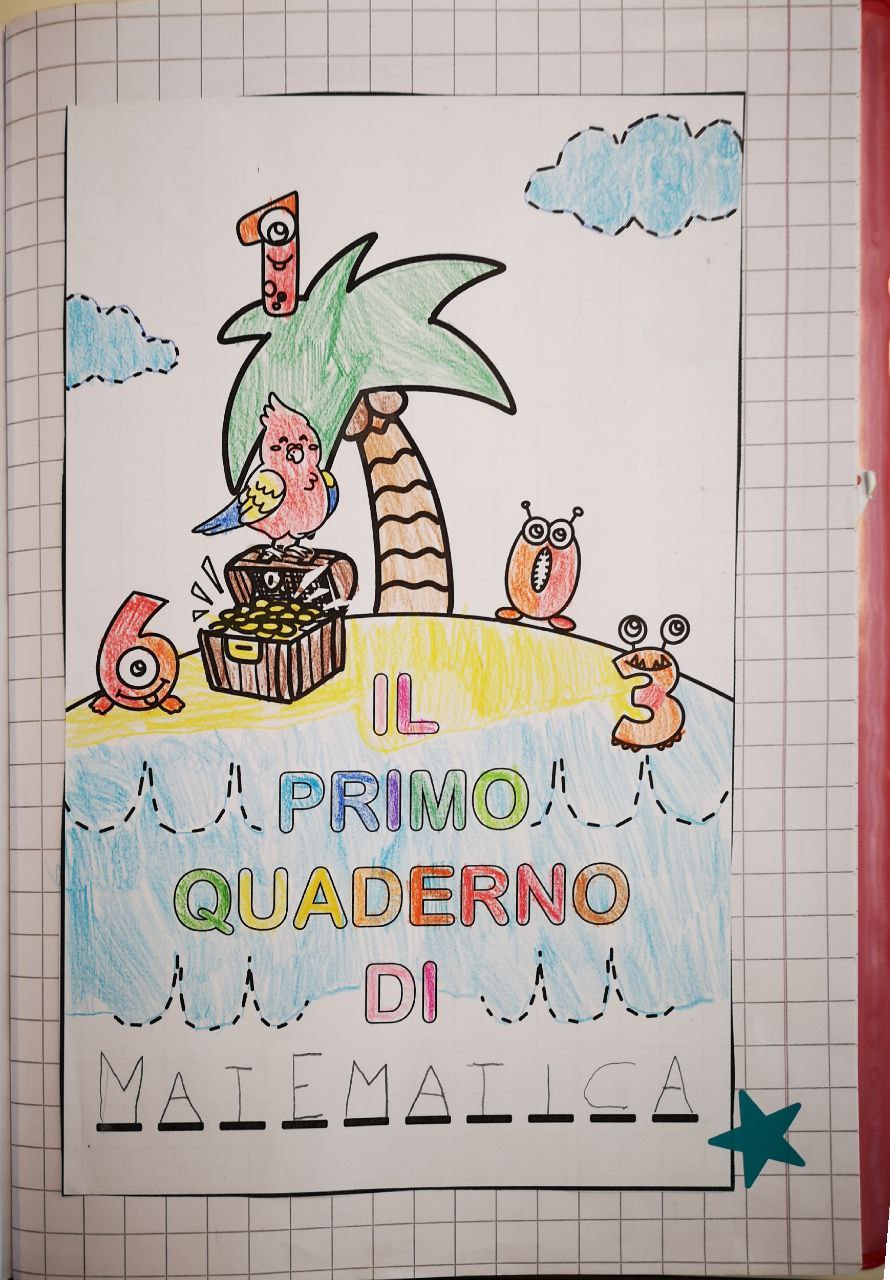 1
0
6
3
IL
PRIMO
QUADERNO
DI
MATEMATICA